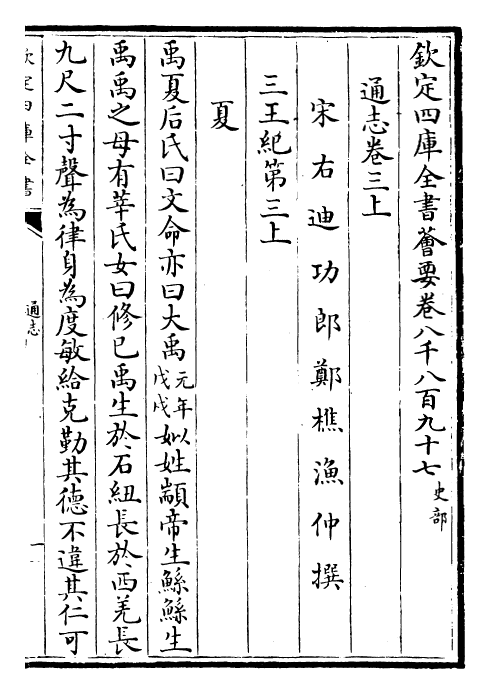 欽定四庫全書薈要卷八千八百九十七 史部
通志卷三上
宋右迪功郎鄭樵漁仲撰
三王紀第三上
夏
禹夏后氏曰文命亦曰大禹 元年戊戌 姒姓顓帝生鯀鯀生
禹禹之母有莘氏女曰修巳禹生於石紐長於西羌長
九尺二寸聲為律身為度敏給克勤其德不違其仁可
欽定四庫全書
通志
一